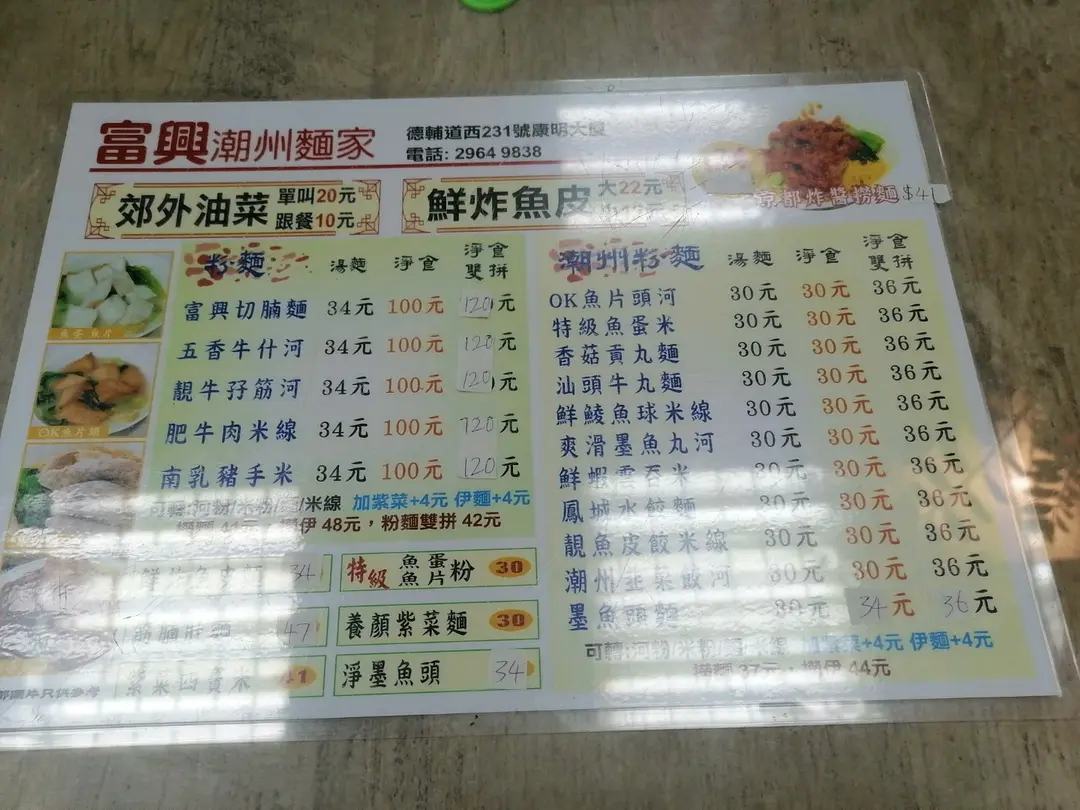 富興潮州麵家
德輔道西231號康明大廈
電話: 2964 9838
郊外油菜 單叫20元 跟餐10元
鮮炸魚皮 大22元
京都炸醬撈麵 $41
粉麵 湯麵 淨食 淨食雙拼
富興切腩麵 34元 100元 120元
五香牛什河 34元 100元 120元
靚牛孖筋河 34元 100元 120元
肥牛肉米線 34元 100元 120元
南乳豬手米 34元 100元 120元
可轉:河粉/米粉/麵/米線 加紫菜+4元 伊麵+4元
撈麵 44元 撈伊 48元，粉麵雙拼 42元
34
特級 魚蛋 魚片 粉 30
47
養顏紫菜麵 30
41
淨墨魚頭 34
潮州粉麵 湯麵 淨食 淨食雙拼
OK魚片頭河 30元 30元 36元
特級魚蛋米 30元 30元 36元
香菇貢丸麵 30元 30元 36元
汕頭牛丸麵 30元 30元 36元
鮮鯪魚球米線 30元 30元 36元
爽滑墨魚丸河 30元 30元 36元
鮮蝦雲吞米 30元 30元 36元
鳳城水餃麵 30元 30元 36元
靚魚皮餃米線 30元 30元 36元
潮州韭菜餃河 30元 30元 36元
墨魚頭麵 30元 34元 36元
可轉:河粉/米粉/麵/米線 加紫菜+4元 伊麵+4元
撈麵 37元 撈伊 44元
OK魚片頭